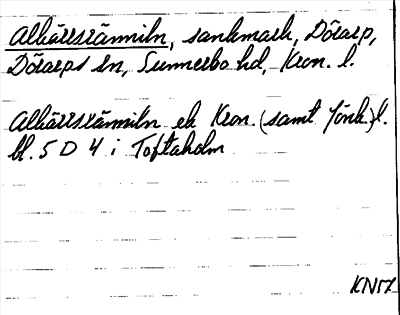 Alkärrsränniln, sankmark, Dörarp,
Dörarps sn, Sunnerbo hd, Kron. l.
Alkärrsränniln ek Kron. (samt Jönk.) l.
bl. 5 D 4 i Toftaholm
KN17